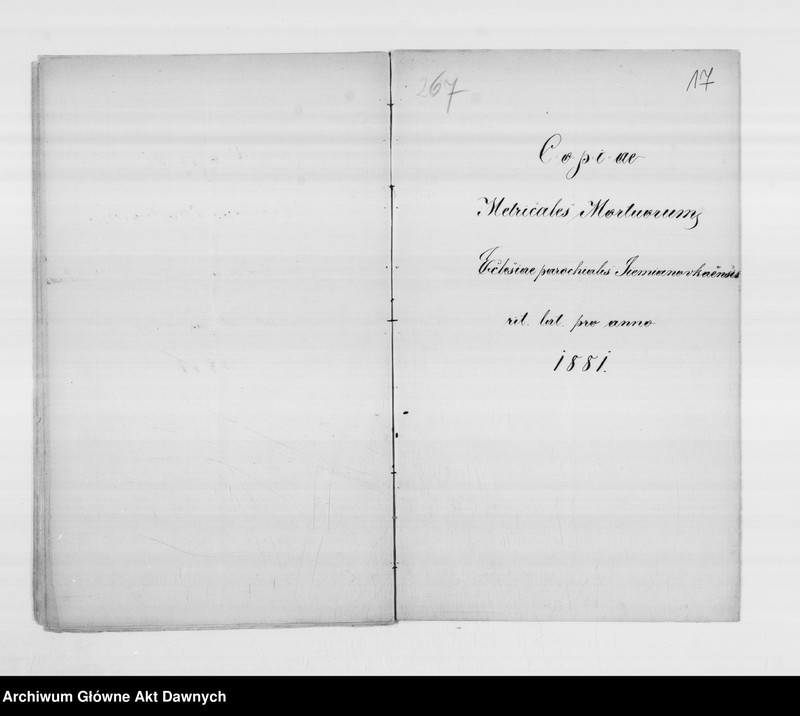 267
17
Copiae
Metricales Mortuorum
Eclesiae parochialis Siemianovkaënsis
rit. lat. pro anno
1881.
Archiwum Główne Akt Dawnych